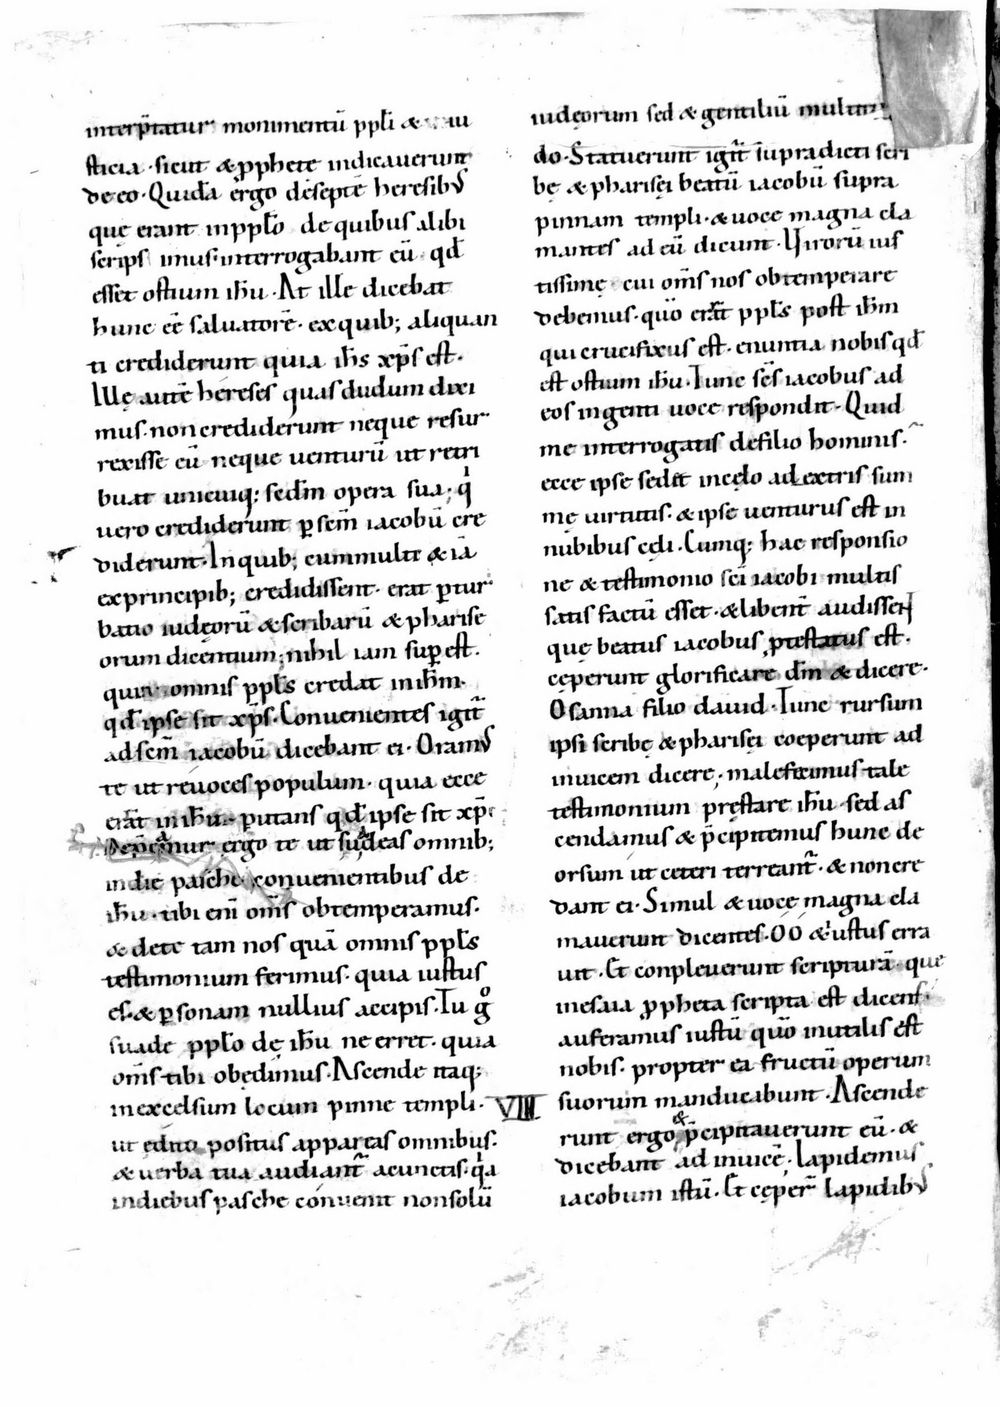 interp̄tatur monimentū ppl̄i &
sticia · sicut & p̱phete indicauerunt
de eo · Quida ergo de septē heresib;
quę erant in ppl̄o de quibus alibi
scrips imus · interrogabant eū · qđ
esset ostium ih̄u · At ille dicebat
hunc eē saluatorē · ex quib; aliquan
ti crediderunt quia ih̄s xp̄s est ·
Illę autē hereses quas dudum dixi
mus · non crediderunt neque resur
rexisse eū neque uenturū ut retri
buat unicuiq; sedm̄ opera sua; q'
uero crediderunt p̱ sem̄ iacobū cre
diderunt · In quib; cum multi & iā
ex principib; credidissent · erat p̱tur
batio iudęorū & scribarū & pharise
orum dicentium; nihil iam sup̱est ·
quia omnis ppl̄s credat in ih̄m ·
qđ ipse sit xp̄s · Conuenientes igit̄
ad sem̄ iacobū dicebant ei · Oram;
te ut reuoces populum · quia ecce
erāt in ih̄u · putans qđ ipse sit xp̄s
ergo te ut suadeas omnib;
in die pasche conuenientibus de
ih̄u · tibi eni om̄s obtemperamus ·
& de te tam nos quā omnis ppl̄s
testimonium ferimus · quia iustus
es · & p̱sonam nullius accipis · Tu gͦ
suade ppl̄o de ih̄u ne erret · quia
om̄s tibi obędimus · Ascende itaq;
in excelsum locum pinne templi ·
ut edito positus appareas omnibus ·
& uerba tua audiant̄ a cunctis · q'a
in diebus pasche conuenit non solū
iudęorum sed & gentiliū
do · Statuerunt igit̄ supradicti scri
bę & pharisęi beatū iacobū supra
pinnam templi · & uoce magna cla
mantes ad eū dicunt · Virorū ius
tissimę cui om̄s nos obtemperare
debemus · quō erāt ppl̄s post ih̄m
qui crucifixus est · enuntia nobis qđ
est ostium ih̄u · Tunc sc̄s iacobus ad
eos ingenti uoce respondit · Quid
me interrogatis de filio hominis ·
ecce ipse sedet in cęlo a dextris sum
mę uirtutis · & ipse uenturus est in
nubibus cęli · Cumq; hac responsio
ne & testimonio sc̄i iacobi multis
satis factū esset · & libent̄ audissent
quę beatus iacobus p̱testatus est ·
cęperunt glorificare dm̄ & dicere ·
Osanna filio dauid · Tunc rursum
ipsi scribę & pharisęi coeperunt ad
inuicem dicere; male fecimus tale
testimonium pręstare ih̄u · sed as
cendamus & p̄cipitemus hunc de
orsum ut ceteri terreant̄ · & non cre
dant ei · Simul & uoce magna cla
mauerunt dicentes · OO & iustus erra
uit · Et conpleuerunt scripturā · que
in esaia p̱pheta scripta est dicens ·
auferamus iustū quō inutilis est
nobis · propter ea fructū operum
VIII suorum manducabunt · Ascende
runt ergo & p̄cipitauerunt eū · &
dicebant ad inuicē · Lapidemus
iacobum istū · Et cęper̄ lapidib;